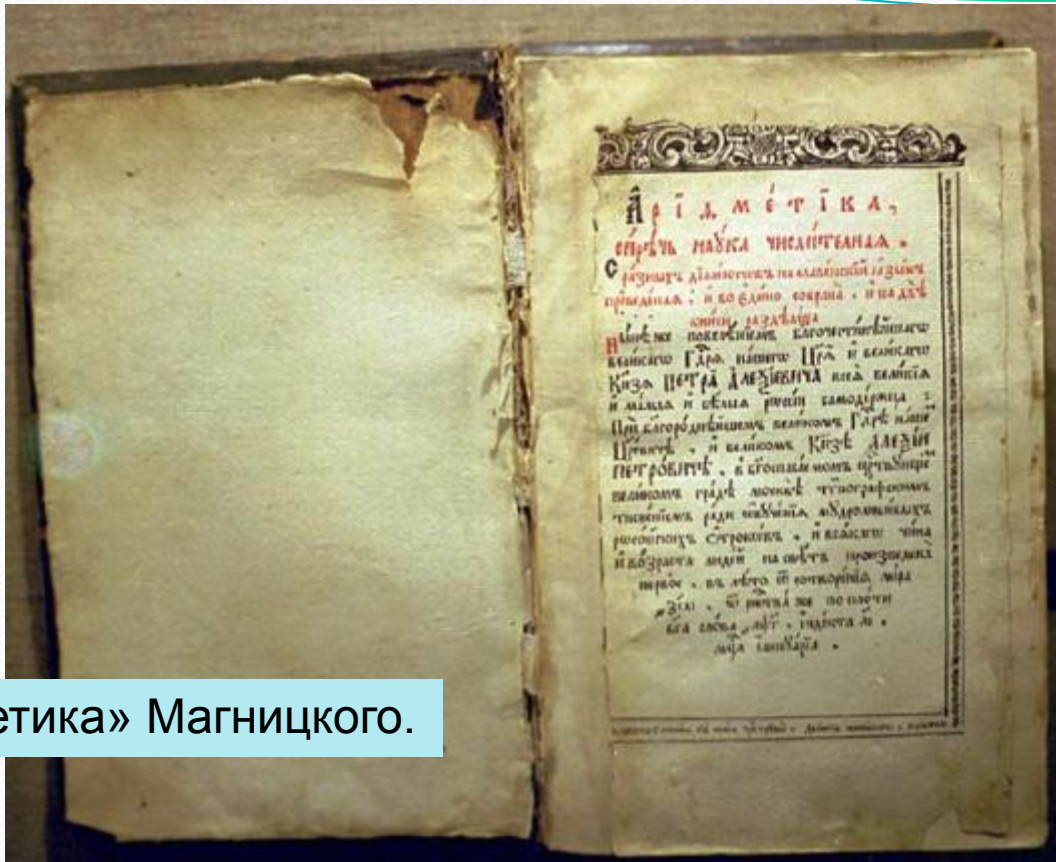 А р і ѳ м е́ т і к а ,
сирѣчь наꙋка числительная .
С разныхъ діалектовъ на славенскій ꙗзыкъ
преведеная , и во едино собрана , и на двѣ
книги раздѣлена
Нынѣ же повелѣнїемъ благочестивѣйшагѡ
великагѡ Гдⷭ҇рѧ нашегѡ Црѧ҃ и великагѡ
Кнѧ҃зѧ ПЕТРА̀ АЛЕѮІЕВИЧА всеѧ̀ великїѧ
и малыѧ и бѣлыѧ рѡссїи самодержца :
При благороднѣйшемъ великомъ Гдⷭ҇рѣ нашемъ
Цр҃евичѣ , и великомъ Кн҃зѣ АЛЕѮІИ
ПЕТРОВИЧѢ , в бг҃оспасаемомъ
великомъ градѣ москвѣ тѵпографскимъ
тисненїемъ ради ѡбꙋченїѧ мꙋдролюбивыхъ
рѡссїйскихъ ѻтрокѡвъ , и всѧкагѡ чина
и возраста людей на свѣтъ произведена
первое , въ лѣто ѿ сотворенїѧ мїра
҂зс҃аі , ѿ рⷤтва̀ же по плоти
бг҃а слова ҂аѱ҃г , індїкта а҃і ,
мцⷭ҇а їаннꙋарїа .
етика» Магницкого.